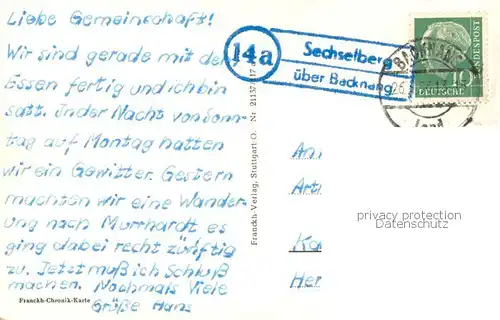 Liebe Gemeinschaft!
Wir sind gerade mit dem
Essen fertig und ich bin
satt. In der Nacht von Sonn-
tag auf Montag hatten
wir ein Gewitter. Gestern
machten wir eine Wander-
ung nach Murrhardt es
ging dabei recht zünftig
zu. Jetzt muß ich Schluß
machen. Nochmals Viele
Grüße Hans
Franckh-Chronik-Karte
Franckh-Verlag, Stuttgart-O. Nr. 21137/17
14a
Sechselberg
über Backnang
BACKNANG
26.
Land
10
DEUTSCHE
BUNDESPOST
An
Art
Ka
Her
privacy protection
Datenschutz